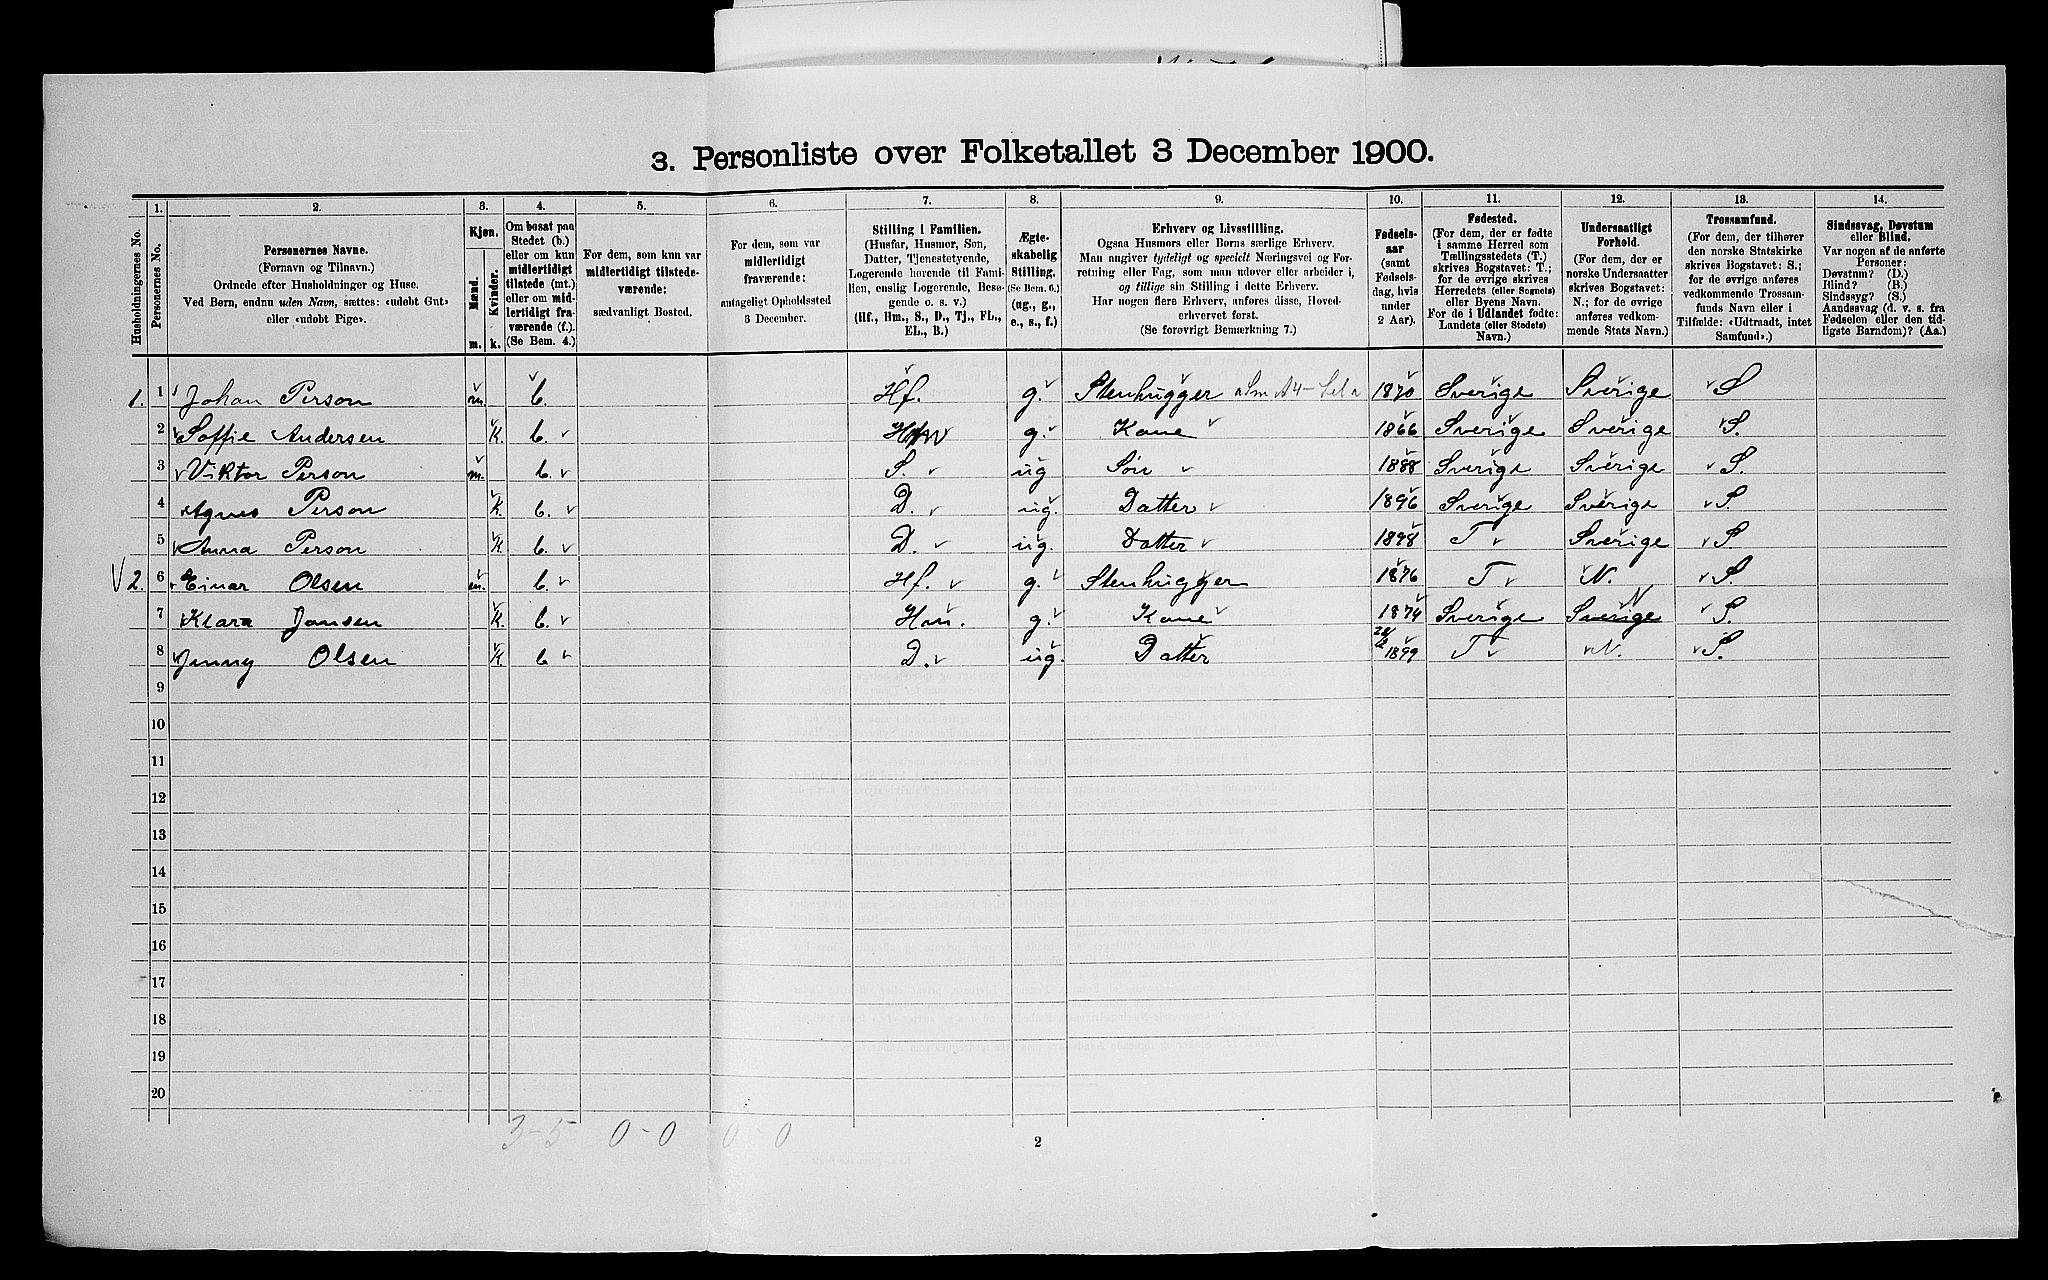 3. Personliste over Folketallet 3 December 1900.
Husholdningernes No.
1. Personernes No.
2. Personernes Navne.
(Fornavn og Tilnavn.)
Ordnede efter Husholdninger og Huse.
Ved Børn, endnu uden Navn, sættes: «udøbt Gut»
eller «udøbt Pige».
3. Kjøn.
Mænd. m.
Kvinder. k.
4. Om bosat paa
Stedet (b.)
eller om kun
midlertidigt
tilstede (mt.)
eller om mid-
lertidigt fra-
værende (f.).
(Se Bem. 4.)
5. For dem, som kun var
midlertidigt tilstede-
værende:
sædvanligt Bosted.
6. For dem, som var
midlertidigt
fraværende:
antageligt Opholdssted
3 December.
7. Stilling i Familien.
(Husfar, Husmor, Søn,
Datter, Tjenestetyende,
Logerende hørende til Fami-
lien, enslig Logerende, Besø-
gende o. s. v.)
(Hf., Hm., S., D., Tj., FL.,
EL., B.)
8. Ægte-
skabelig
Stilling.
(Se Bem. 6.)
(ug., g.,
e., s., f.)
9. Erhverv og Livsstilling.
Ogsaa Husmors eller Børns særlige Erhverv.
Man angiver tydeligt og specielt Næringsvei og For-
retning eller Fag, som man udøver eller arbeider i,
og tillige sin Stilling i dette Erhverv.
Har nogen flere Erhverv, anføres disse, Hoved-
erhvervet først.
(Se forøvrigt Bemærkning 7.)
10. Fødsels-
aar
(samt
Fødsels-
dag, hvis
under
2 Aar).
11. Fødested.
(For dem, der er fødte
i samme Herred som
Tællingsstedets (T.)
skrives Bogstavet: T.;
for de øvrige skrives
Herredets (eller Sognets)
eller Byens Navn.
For de i Udlandet fødte:
Landets (eller Stedets)
Navn.)
12. Undersaatligt
Forhold.
(For dem, der er
norske Undersaatter
skrives Bogstavet:
N.; for de øvrige
anføres vedkom-
mende Stats Navn.)
13. Trossamfund.
(For dem, der tilhører
den norske Statskirke
skrives Bogstavet: S.;
for de øvrige anføres
vedkommende Trossam-
funds Navn eller i
Tilfælde: «Udtraadt, intet
Samfund».)
14. Sindssvag, Døvstum
eller Blind.
Var nogen af de anførte
Personer:
Døvstum? (D.)
Blind? (B.)
Sindssyg? (S.)
Aandssvag (d. v. s. fra
Fødselen eller den tid-
ligste Barndom)? (Aa.)
1. 1 Johan Person m. b. Hf. g. Stenhugger 1870 Sverige Sverige S
2 Soffie Andersen K. b. Hm g. Kone 1866 Sverige Sverige S.
3 Viktor Person m. b. S. ug Søn 1888 Sverige Sverige S.
4 Agnes Person K. b. D. ug. Datter 1896 Sverige Sverige S.
5 Anna Person K b. D. ug. Datter 1898 T Sverige S.
2. 6 Einar Olsen m. b. Hf. g. Stenhugger 1876 T N. S.
7 Klara Jansen K. b. Hm. g. Kone 1874 Sverige Sverige N S.
8 Jenny Olsen K. b D. ug. Datter 1899 T N. S.
9
10
11
12
13
14
15
16
17
18
19
20
3-5 0-0 0-0
2